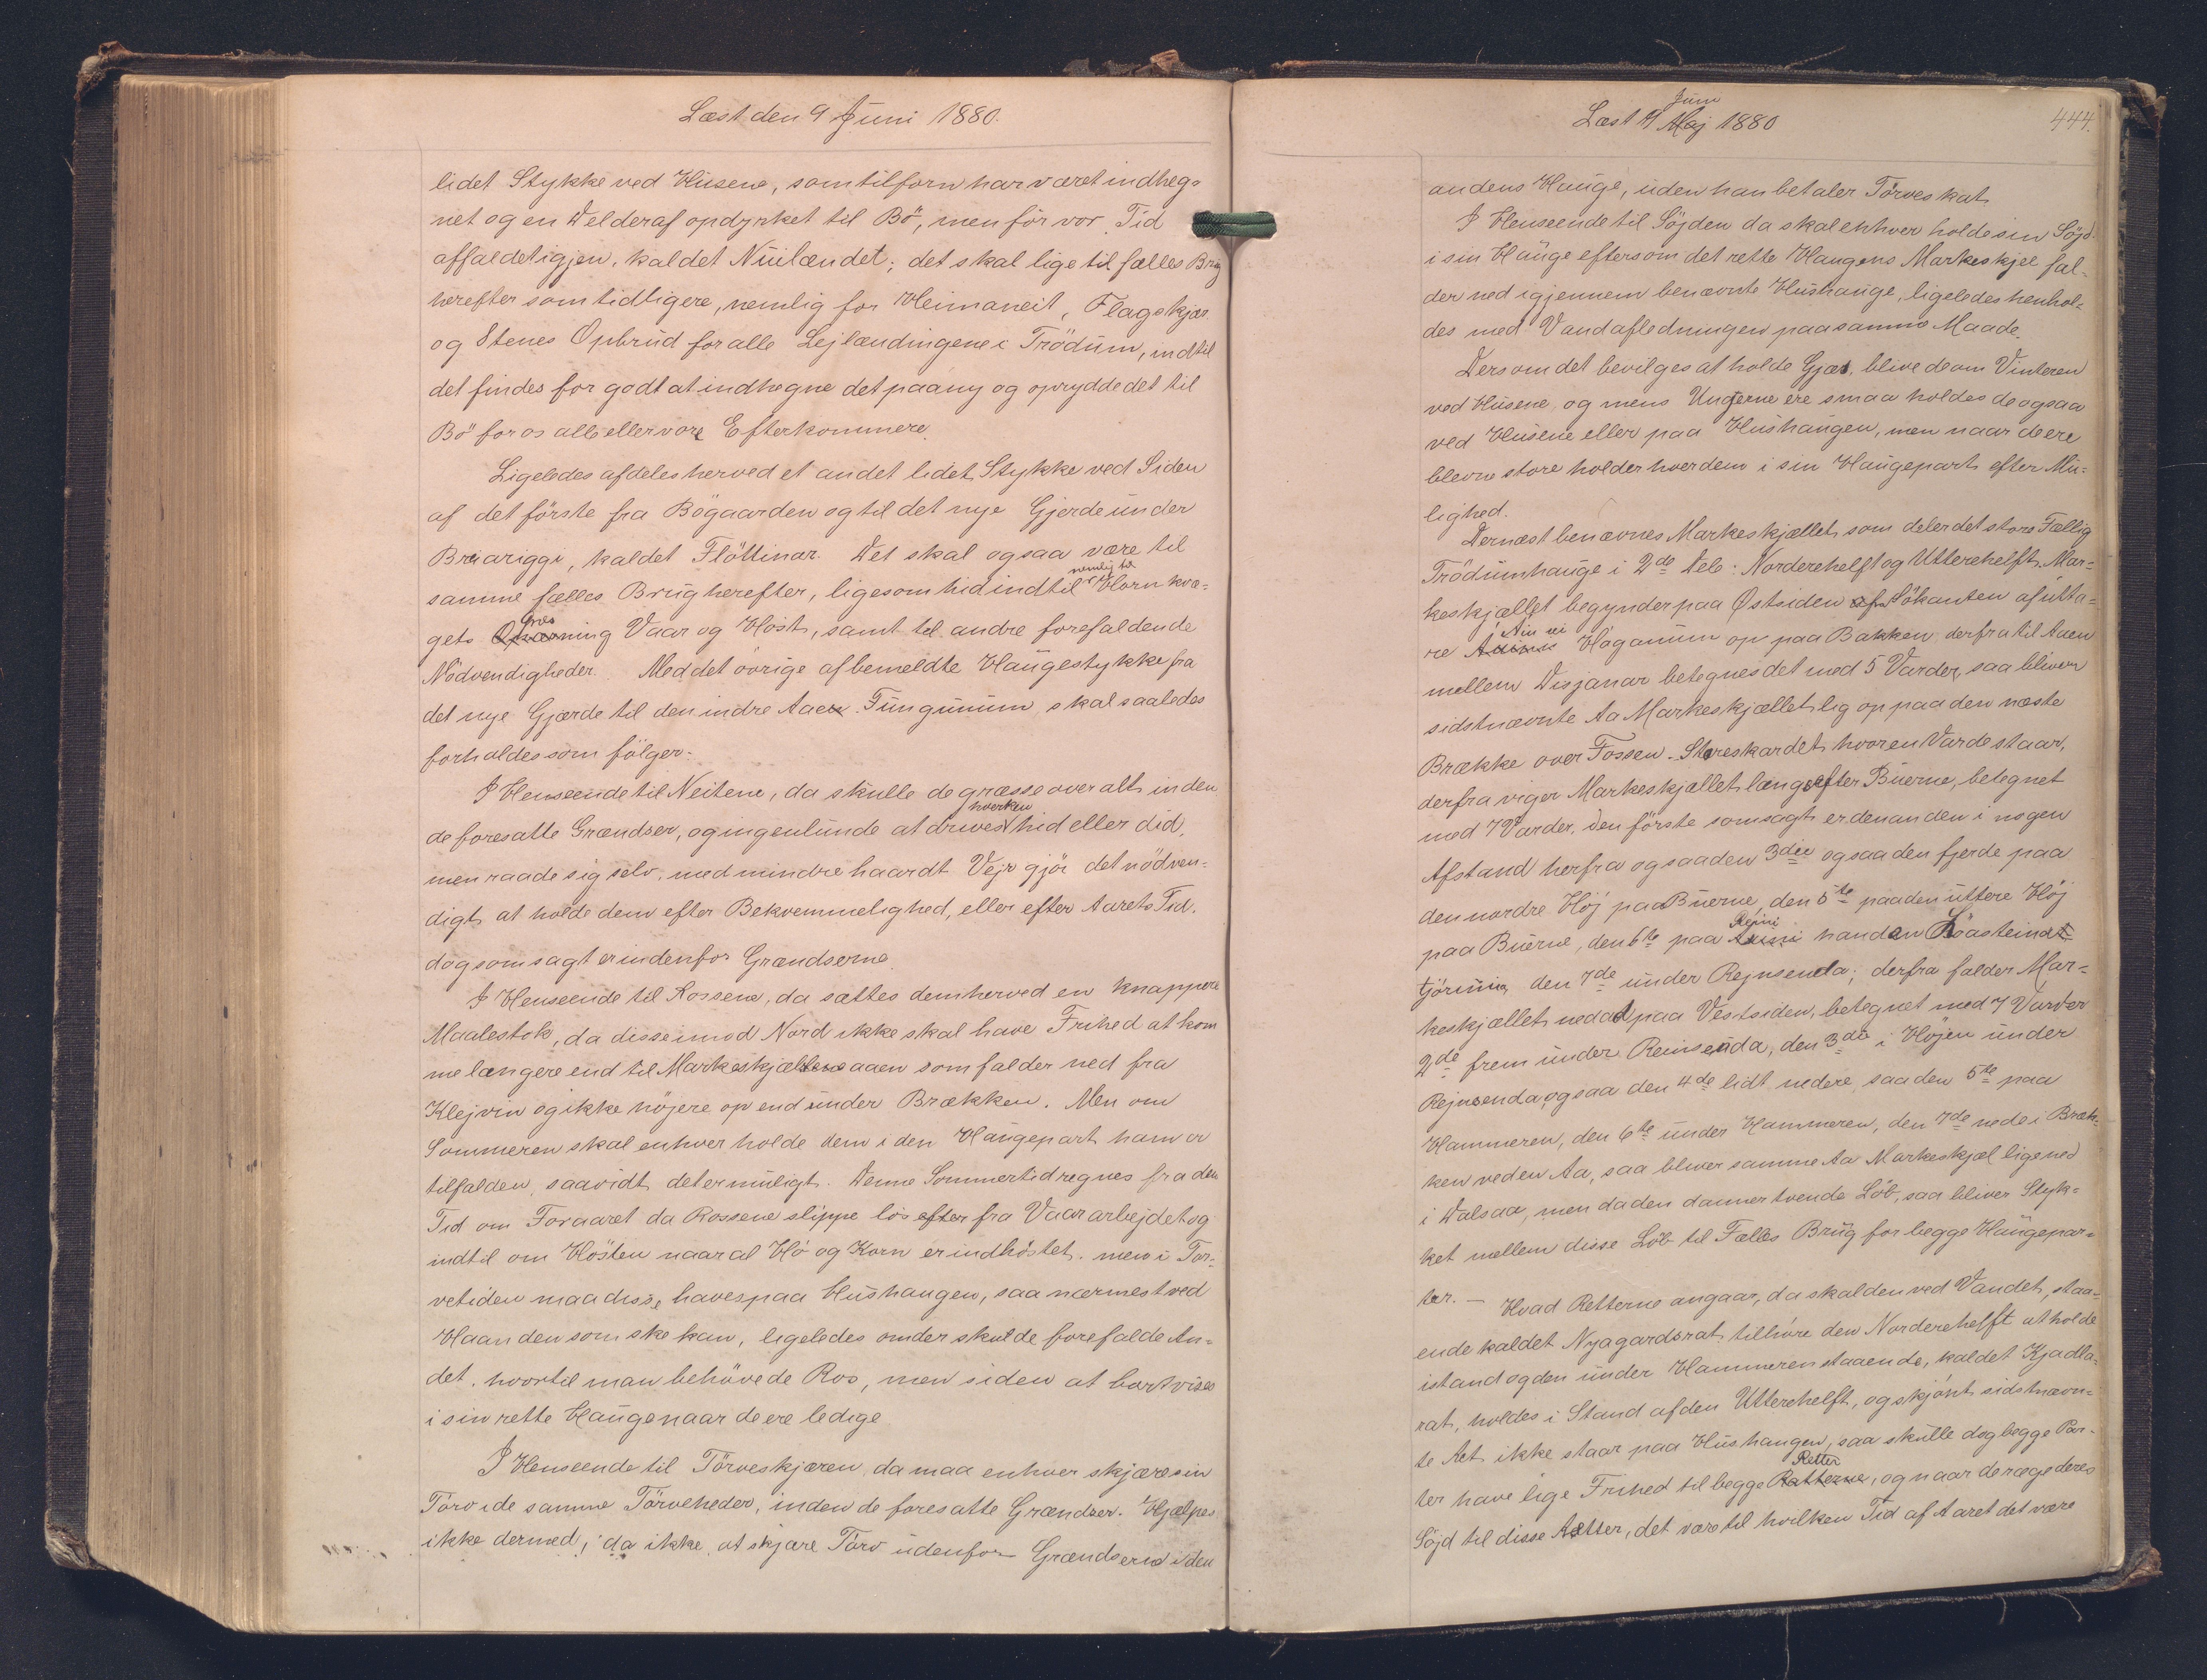 Læst den 9 Juni 1880.
lidet Stykke ved Husene, som tilforn har været indheg-
net og en Del deraf opdyrket til Bö, men för vor Tid
affaldet igjen, kaldet Nuilændet; det skal lige til fælles Brug
herefter som tidligere, nemlig for Heimaneit, Flagskjær
og Stenes Opbrud for alle Lejlændingene i Trödum, indtil
det findes for godt at indhegne det paany og oprydde det til
Bö for os alle eller vore Efterkommere.
Ligeledes afdeles herved et andet lidet Stykke ved Siden
af det förste fra Bögaarden og til det nye Gjerde under
Breariggi, kaldet Flöttinar. Det skal ogsaa være til
nemlig til
samme fælles Brug herefter, ligesom hidindtil Hornkvæ-
Græs
gets ning Vaar og Höst, samt til andre forefaldende
Nödvendigheder. Med det övrige af bemeldte Haugestykke fra
det nye Gjærde til den indre Aaen Tungunum skal saaledes
forholdes som fölger:
I Henseende til Neitene, da skulle de græsse over alt inden
hverken
de foresatte Grændser, og ingenlunde at drives hid eller did,
men raade sig selv, med mindre haardt Vejr gjör det nödven-
digt at holde dem efter Bekvemmelighed, eller efter Aarets Tid,
dog som sagt er indenfor Grændserne.
I Henseende til Rossene, da sættes dem herved en knappere
Maalestok, da disse imod Nord ikke skal have Frihed at kom
me længere end til Markeskjællens aaen som falder ned fra
Klejvin og ikke höjere op end under Brækken. Men om
Sommeren skal enhver holde dem i den Haugepart ham er
tilfalden, saavidt det er muligt. Denne Sommertid regnes fra den
Tid om Foraaret da Rossene slippe lös efter fra Vaararbejdet og
indtil om Hösten naar al Hö og Korn er indhöstet. men i Tör-
vetiden maa disse haves paa Hushaugen, saa nærmest ved
Haanden som ske kan, ligeledes om der skulde forefalde An-
det, hvortil man behövede Ros, men siden at bortvises
i sin rette Hauge naar de ere ledige
I Henseende til Törveskjæren, da maa enhver skjære sin
Törv i de samme Törveheder, inden de foresatte Grændser. Hjælpes
ikke dermed, da ikke at skjære Törv udenfor Grændserne i den
Juni
Læst 9 Maj 1880
444.
andens Hauge, uden han betaler Törveskat
I Henseende til Söjden da skal enhver holde sin Söjd
i sin Hauge eftersom det rette Haugens Markeskjel fal-
der ned igjennem benævnte Hushauge, ligeledes henhol-
des med Vandafledningen paa samme Maade.
Dersom det bevilges at holde Gjæs, blive de om Vinteren
ved Husene, og mens Ungerne ere smaa holdes de ogsaa
ved Husene eller paa Hushaugen, men naar de ere
blevne store holder hver dem i sin Haugepart efter Mu-
lighed.
Dernæst benævnes Markeskjællet som deler det store Fællig
Trödumhauge i 2de Dele: Norderehelft og Utterehelft. Mar-
keskjællet begynder paa Østsiden af Sökanten af utta-
Ain ui
re Höganum op paa Bakken derfra til Aaen
mellem Disjanar betegnes det med 5 Varder, saa bliver
sidstnævnte Aa Markeskjællet lig op paa den næste
Brække over Fossen. Storeskardet, hvor en Varde staar,
derfra viger Markeskjællet langs efter Buerne, betegnet
med 7 Varder. Den förste som sagt er den anden i nogen
Afstand herfra ogsaa den 3die ogsaa den fjerde paa
den nordre Höj paa Buerne, den 5te paa den uttere Höj
Rejni
paa Buerne, den 6te paa handan Röasteins
tjörnina den 7de under Rejnsenda; derfra falder Mar-
keskjællet nedad paa Vestsiden, betegnet med 7 Varder
2de frem under Reinsenda, den 3die i Höjen under
Rejnsenda, ogsaa den 4de lidt nedere, saa den 5te paa
Hammeren, den 6te under Hammeren, den 7de nede i Bræk-
ken ved en Aa, saa bliver samme Aa Markeskjæl lige ned
i Dalsaa, men da den danner tvende Löb, saa bliver Styk-
ket mellem disse Löb til Fælles Brug for begge Haugepar-
ter. — Hvad Retterne angaar, da skal den ved Vandet staa-
ende kaldet Nyagardsrat tilhöre den Norderehelft at holde
istand og den under Hammeren staaende, kaldet Kjadla-
rat, holdes i Stand af den Utterehelft, og skjönt sidstnævn-
te Ret ikke staar paa Hushaugen, saa skulle dog begge Par-
Retter
ter have lige Frihed til begge Ratterne, og naar de ræge deres
Söjd til disse Retter, det være til hvilken Tid af Aaret det være